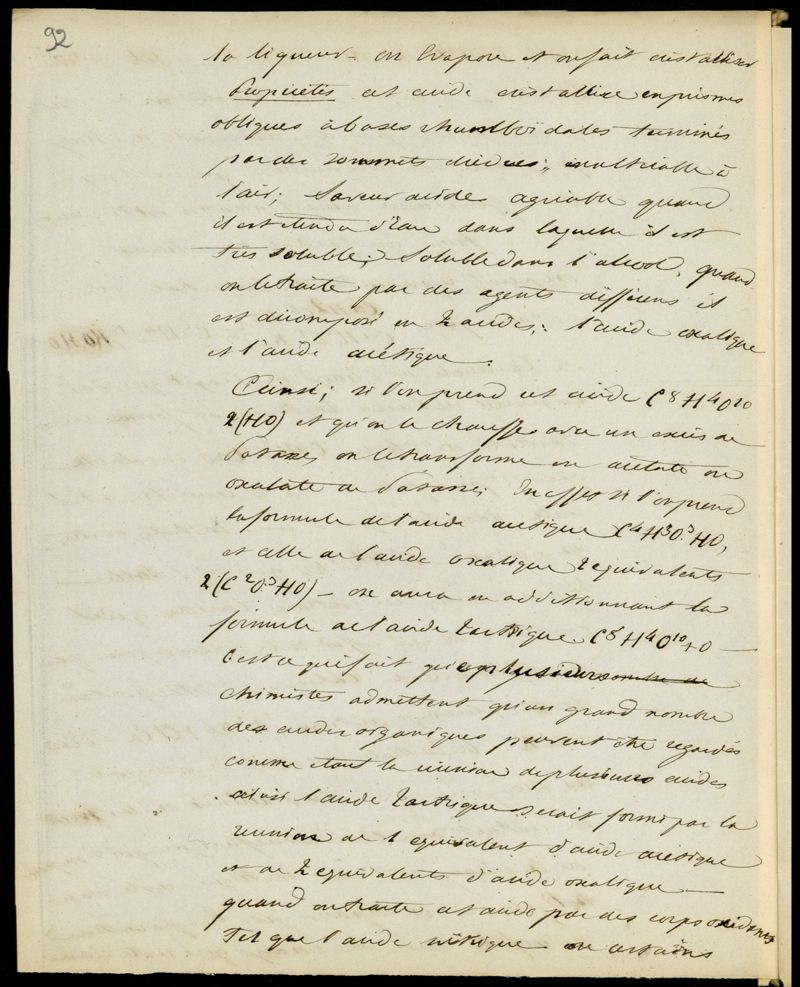 92
la liqueur - on Evapore et on fait cristalliser
Propriétés cet acide cristallise en prismes
obliques à bases rhomboïdales terminés
par des sommets dièdres; inaltérable à
l'air; Saveur acide agréable quand
il est étendu d'Eau dans laquelle il est
très soluble; Soluble dans l'alcool, quand
on le traite par des agents différens il
est décomposé en 2 acides; l'acide oxalique
et l'acide acétique.
Ainsi; si l'on prend cet acide C8 H4 O10
2(HO) et qu'on le chauffe avec un excès de
Potasse, on le transforme en acétate ou
oxalate de Potasse; En effet si l'on prend
la formule de l'acide acétique C4H3O3HO,
et celle de l'acide oxalique 2 équivalents
2(C2O3HO) - on aura en additionnant la
formule de l'acide tartrique. C8H4O10+O -
C'est ce qui fait que plusieurs nombre de
chimistes admettent qu'un grand nombre
des acides organiques peuvent être regardés
comme étant la réunion de plusieurs acides
ainsi l'acide tartrique serait formé par la
réunion de 1 equivalent d'acide acétique
et de 2 equivalents d'acide oxalique -
quand on traite cet acide par des corps oxidants
Tel que l'acide nitrique on certains